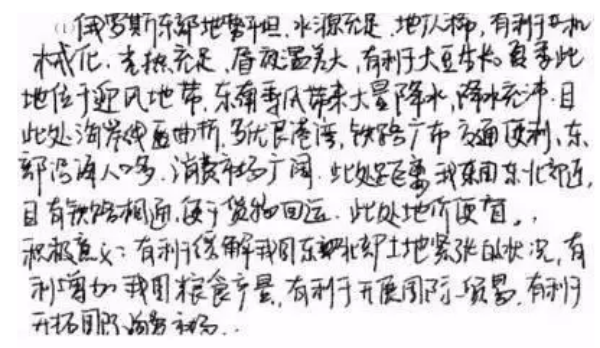 (1)俄罗斯东部地势平坦,水源充足,地广人稀,有利于机
械化,光热充足,昼夜温差大,有利于大豆生长。夏季此
地位于迎风地带,东南季风带来大量降水,降水充沛.且
此处海岸线曲折,多优良港湾,铁路广布 交通便利,东
部沿海人口多,消费市场广阔.此处距离我国东北部近,
且有铁路相通,便于货物回运.此处地价便宜.
积极意义:有利于缓解我国东北部土地紧张的状况,有
利增加我国粮食产量,有利于开展国际贸易,有利于
开拓国际消费市场..